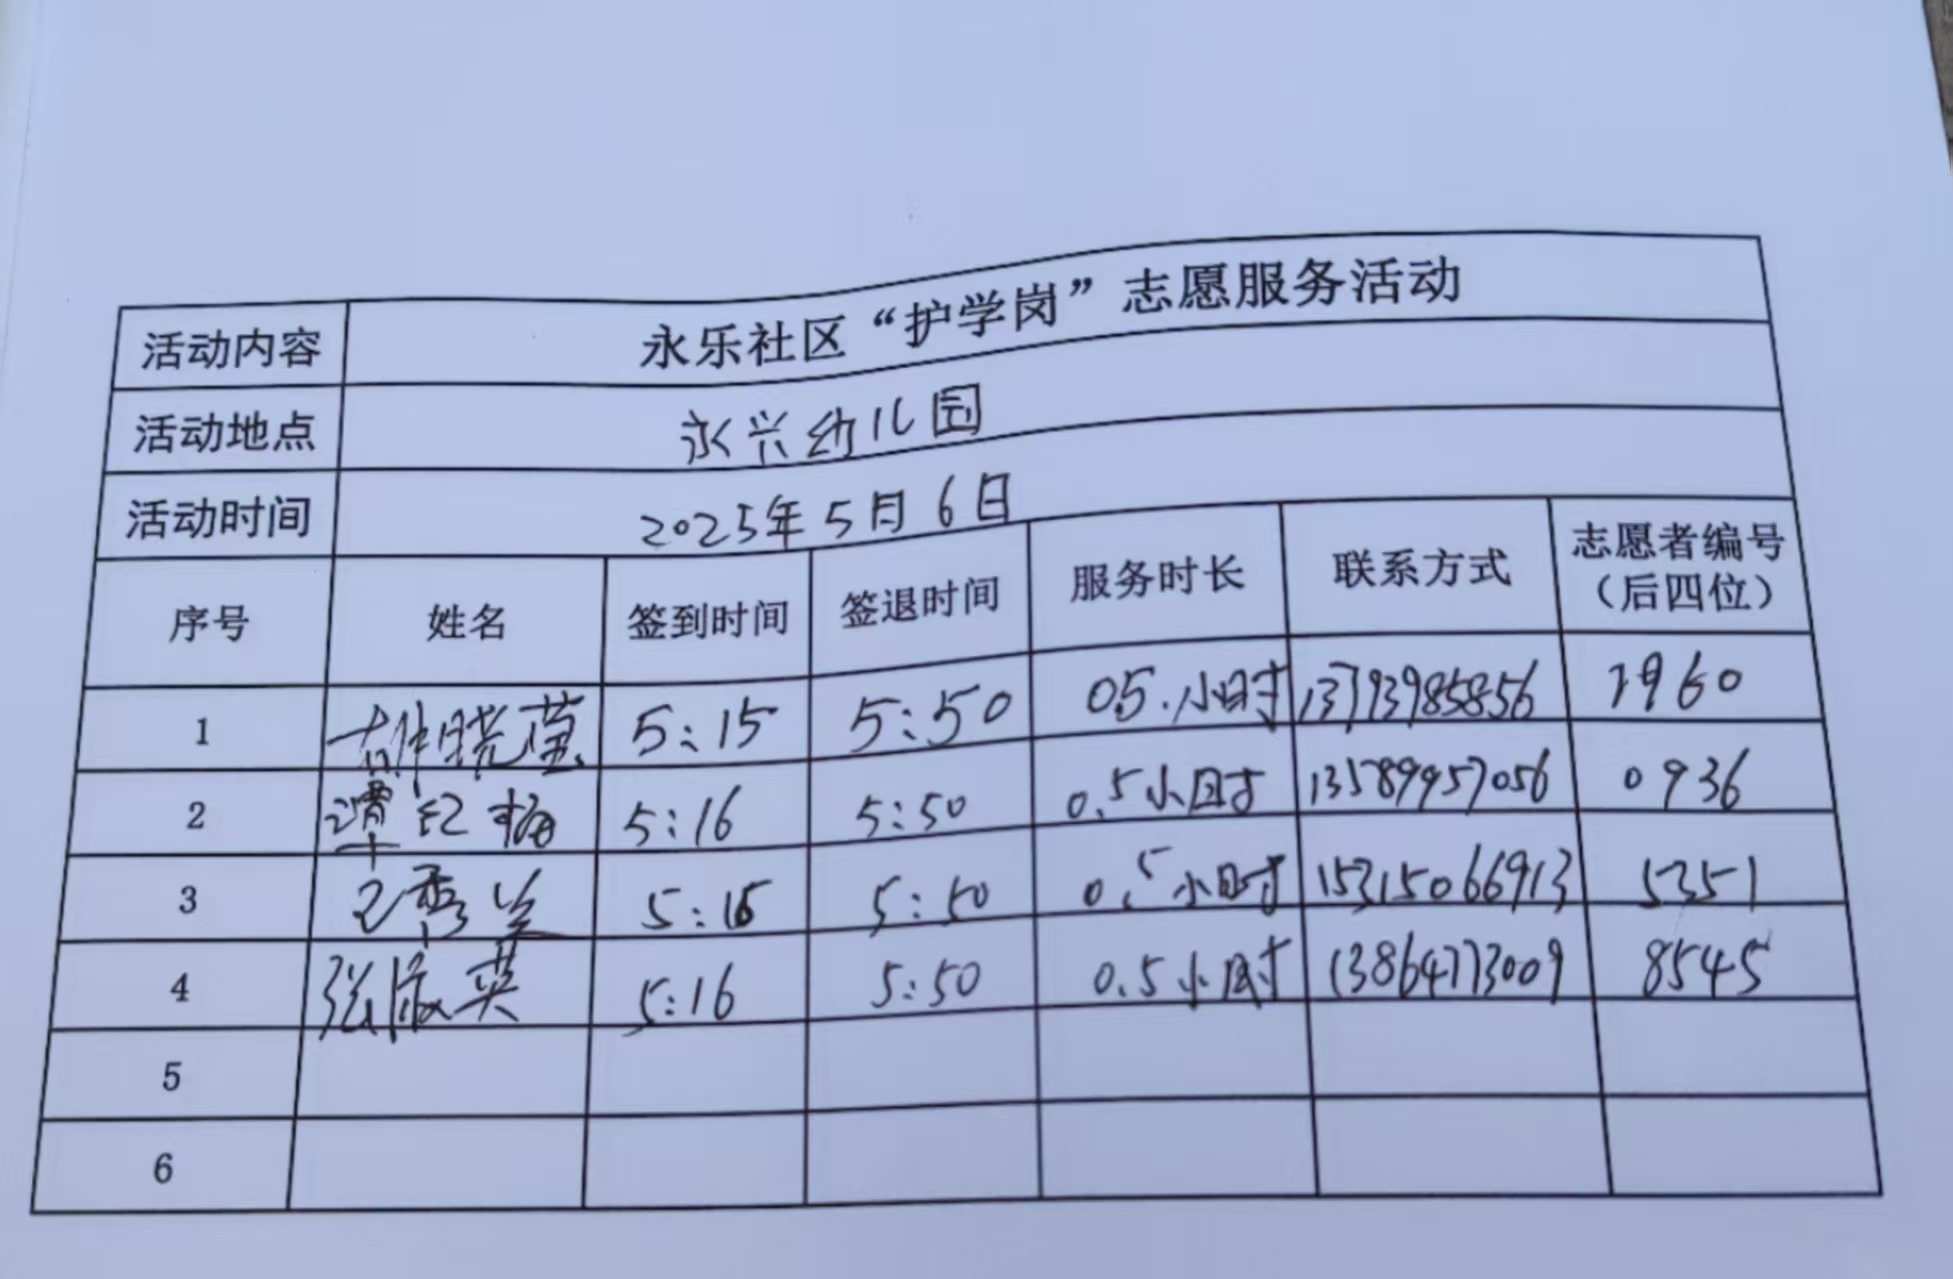 活动内容 永乐社区“护学岗”志愿服务活动
活动地点 永兴幼儿园
活动时间 2025年5月6日
序号 姓名 签到时间 签退时间 服务时长 联系方式 志愿者编号（后四位）
1 晓莹 5:15 5:50 05.小时 13793985856 7960
2 谭红梅 5:16 5:50 0.5小时 13589957056 0936
3 王秀兰 5:16 5:50 0.5小时 15315066913 5351
4 张淑英 5:16 5:50 0.5小时 13864773009 8545
5
6